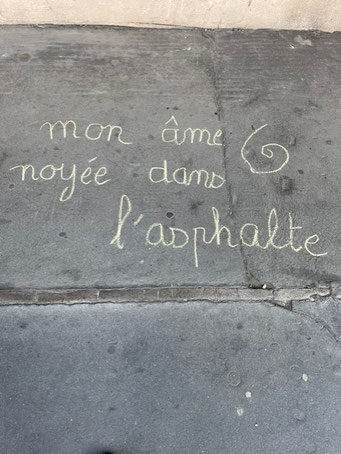 mon âme
noyée dans
l'asphalte